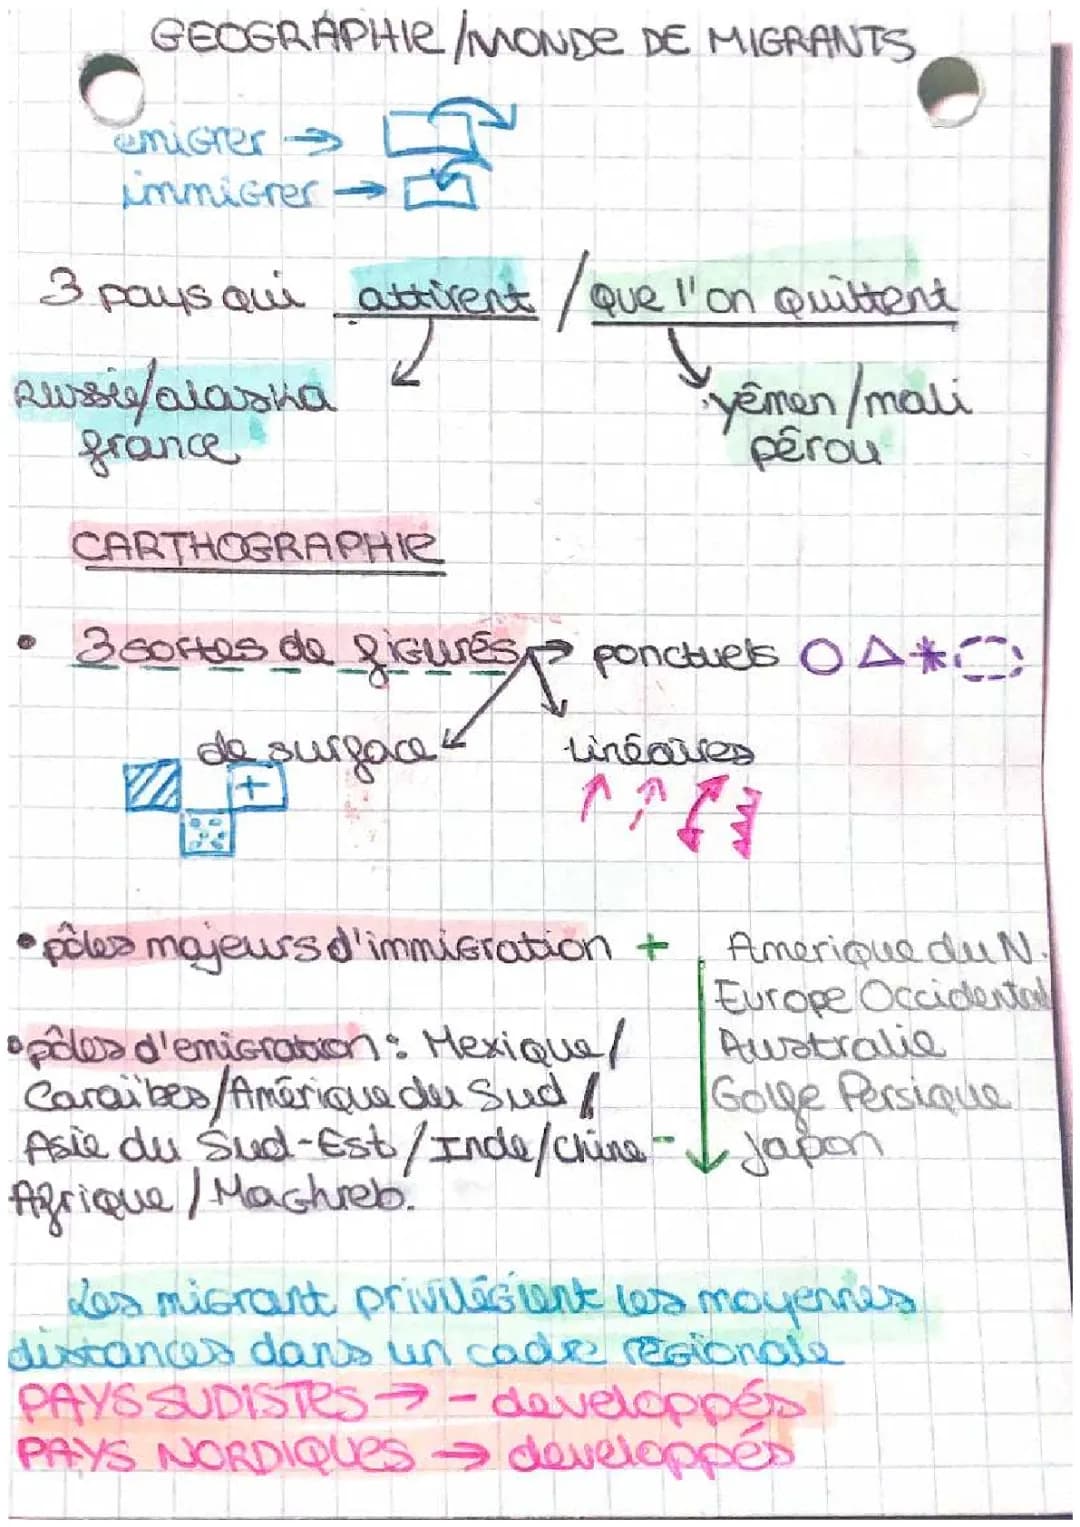 GEOGRAPHIE/MONDE DE MIGRANTS
emigrer →
immigrer →
3 pays qui attirent / que l'on quittent
Russie/alaska
france
yêmen/mali
pérou
CARTHOGRAPHIE
• 3 sortes de figurés → ponctuels
de surface
linéaires
+
• pôles majeurs d'immigration +
Amerique du N.
Europe Occidental
Australie
Golfe Persique
Japon
• pôles d'emigration : Mexique/
Caraïbes/Amérique du Sud/
Asie du Sud-Est/Inde/Chine-
Afrique/Maghreb.
Les migrant privilégient les moyennes
distances dans un cadre régionale
PAYS SUDISTES → - developpés
PAYS NORDIQUES → developpés